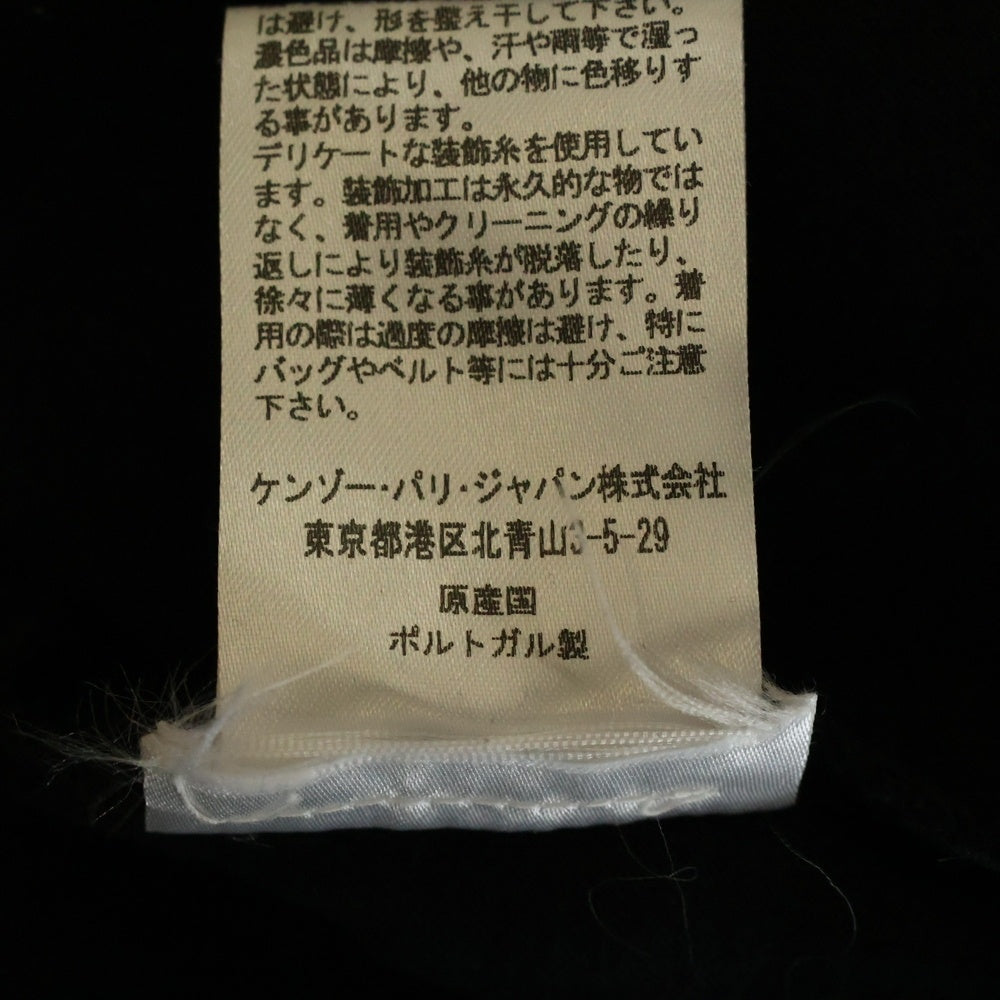 は避け、形を整え干して下さい。
濃色品は摩擦や、汗や雨等で湿っ
た状態により、他の物に色移りす
る事があります。
デリケートな装飾糸を使用してい
ます。装飾加工は永久的な物では
なく、着用やクリーニングの繰り
返しにより装飾糸が脱落したり、
徐々に薄くなる事があります。着
用の際は過度の摩擦は避け、特に
バッグやベルト等には十分ご注意
下さい。
ケンゾー・パリ・ジャパン株式会社
東京都港区北青山3-5-29
原産国
ポルトガル製